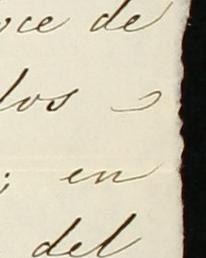 oce de
los
; en
del